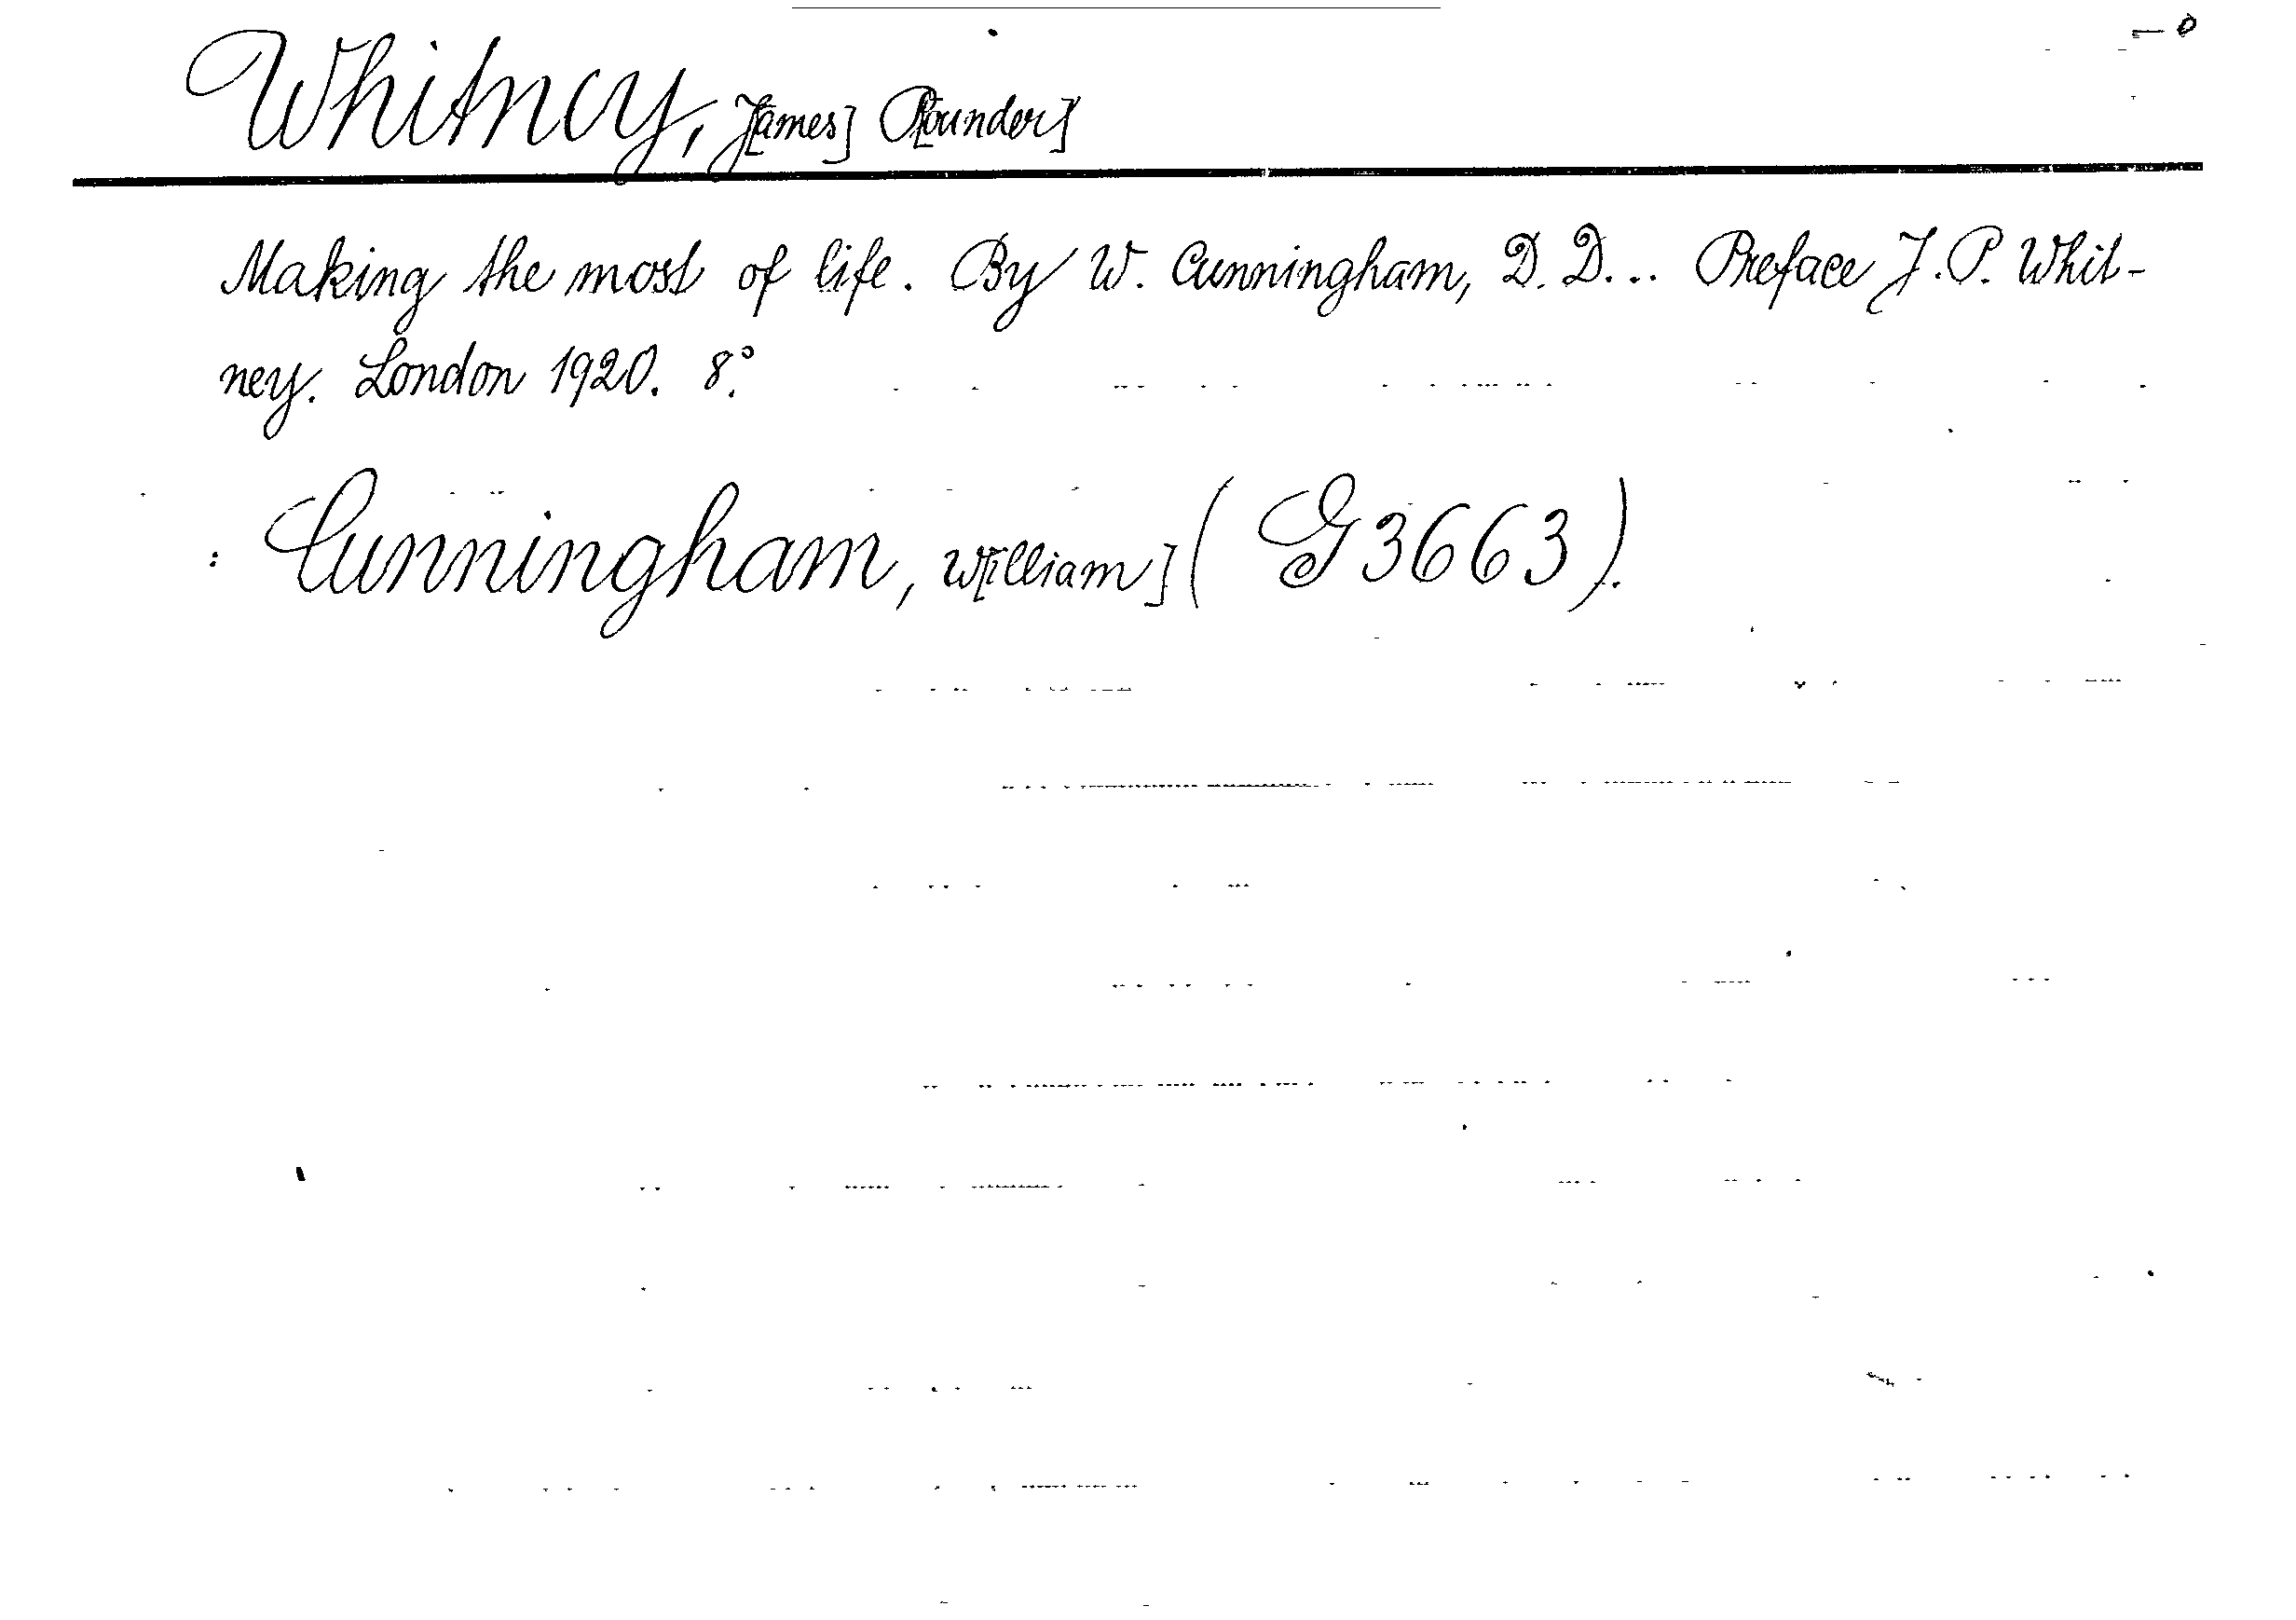 Whitney, J[ames] P[ounder]
Making the most of life. By W. Cunningham, D. D... Preface J. P. Whit-
ney. London 1920. 8°.
: Cunningham, W[illiam] (G3663).